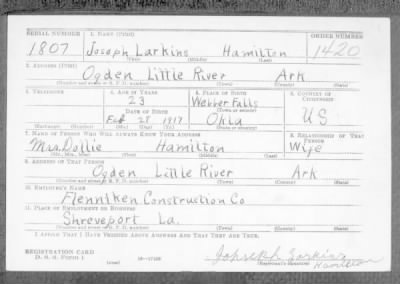 SERIAL NUMBER 1. NAME (Print) ORDER NUMBER
1807 Joseph Larkins Hamilton 1420
(First) (Middle) (Last)
2. ADDRESS (Print)
Ogden Little River Ark
(Number and street or R. F. D. number) (Town) (County) (State)
3. TELEPHONE 4. AGE IN YEARS 5. PLACE OF BIRTH 6. COUNTRY OF CITIZENSHIP
23 Webber Falls
DATE OF BIRTH (Town or county)
Feb 28 1917 Okla US
(Exchange) (Number) (Mo.) (Day) (Yr.) (State or country)
7. NAME OF PERSON WHO WILL ALWAYS KNOW YOUR ADDRESS 8. RELATIONSHIP OF THAT PERSON
Mrs. Dollie Hamilton Wife
(Mr., Mrs., Miss) (First) (Middle) (Last)
9. ADDRESS OF THAT PERSON
Ogden Little River Ark
(Number and street or R. F. D. number) (Town) (County) (State)
10. EMPLOYER'S NAME
Flenniken Construction Co
11. PLACE OF EMPLOYMENT OR BUSINESS
Shreveport La.
(Number and street or R. F. D. number) (Town) (County) (State)
I AFFIRM THAT I HAVE VERIFIED ABOVE ANSWERS AND THAT THEY ARE TRUE.
REGISTRATION CARD
D. S. S. Form 1 (over) 16-17105
Johseph Larkins
Hamilton
(Registrant's Signature)